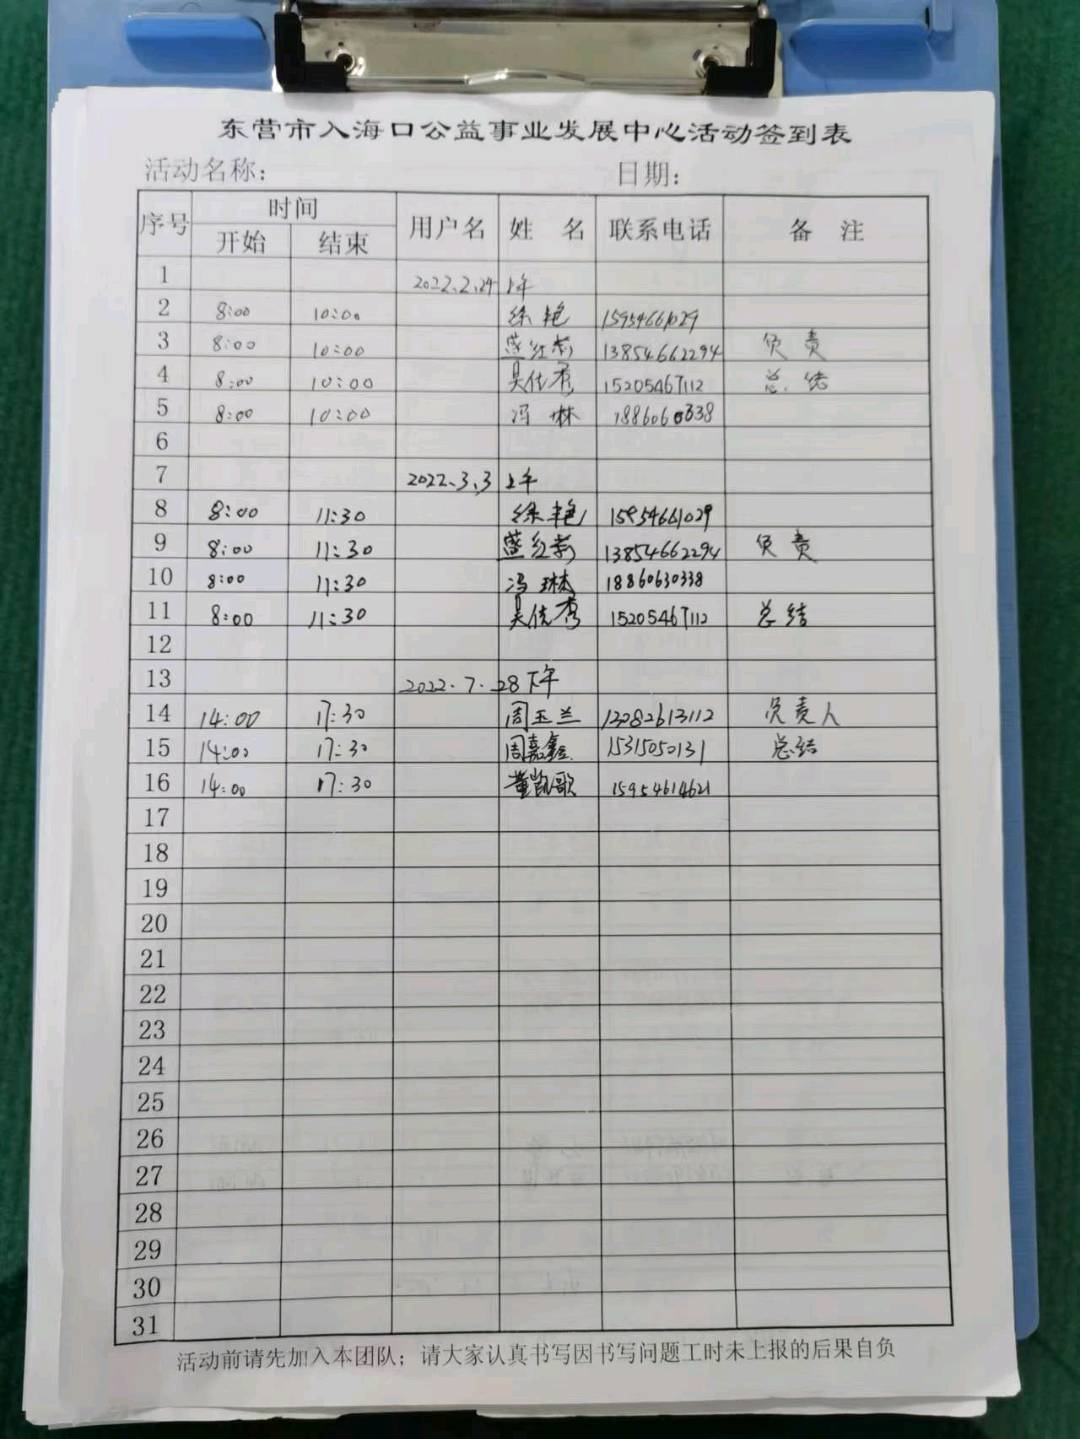 东营市入海口公益事业发展中心活动签到表
活动名称: 日期:
序号 时间 用户名 姓 名 联系电话 备 注
开始 结束
1 2022.2.24 上午
2 8:00 10:00 徐艳 15954661029
3 8:00 10:00 红 13854662294 负责
4 8:00 10:00 吴优秀 15205467112 总结
5 8:00 10:00 冯琳 18860630338
6
7 2022.3.3 上午
8 8:00 11:30 徐艳 15954661029
9 8:00 11:30 红 13854662294 负责
10 8:00 11:30 冯琳 18860630338
11 8:00 11:30 吴优秀 15205467112 总结
12
13 2022.7.28下午
14 14:00 17:30 周玉兰 13282613112 负责人
15 14:00 17:30 周嘉鑫 15315050131 总结
16 14:00 17:30 董凯歌 15954614621
17
18
19
20
21
22
23
24
25
26
27
28
29
30
31
活动前请先加入本团队；请大家认真书写因书写问题工时未上报的后果自负